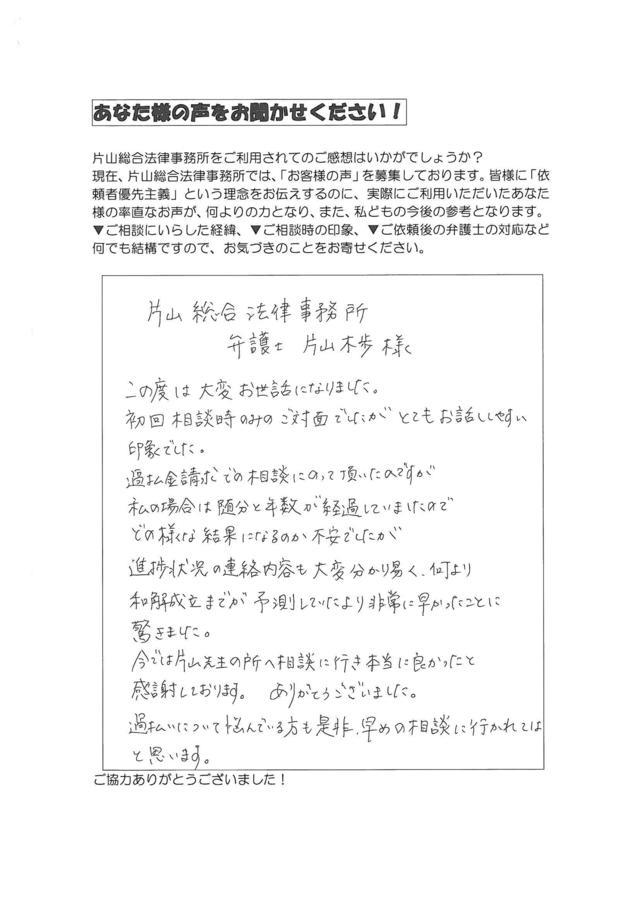 あなた様の声をお聞かせください！
片山総合法律事務所をご利用されてのご感想はいかがでしょうか？
現在、片山総合法律事務所では、「お客様の声」を募集しております。皆様に「依
頼者優先主義」という理念をお伝えするのに、実際にご利用いただいたあなた
様の率直なお声が、何よりの力となり、また、私どもの今後の参考となります。
▼ご相談にいらした経緯、▼ご相談時の印象、▼ご依頼後の弁護士の対応など
何でも結構ですので、お気づきのことをお寄せください。
片山総合法律事務所
弁護士 片山木歩様
この度は大変お世話になりました。
初回相談時のみのご対面でしたがとてもお話ししやすい
印象でした。
過払金請求での相談にのって頂いたのですが
私の場合は随分と年数が経過していましたので
どの様な結果になるのか不安でしたが
進捗状況の連絡内容も大変分かり易く、何より
和解成立までが予測していたより非常に早かったことに
驚きました。
今では片山先生の所へ相談に行き本当に良かったと
感謝しております。 ありがとうございました。
過払いについて悩んでいる方も是非、早めの相談に行かれては
と思います。
ご協力ありがとうございました！